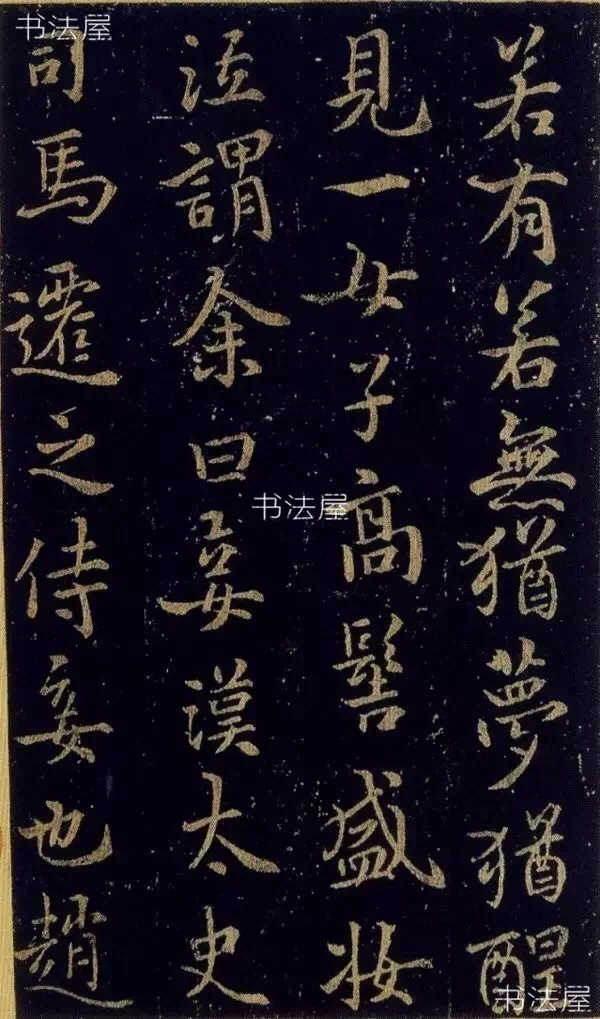 若有若無猶夢猶醒
見一女子高髻盛妝
泣謂余曰妾漢太史
司馬遷之侍妾也趙
书法屋
书法屋
书法屋